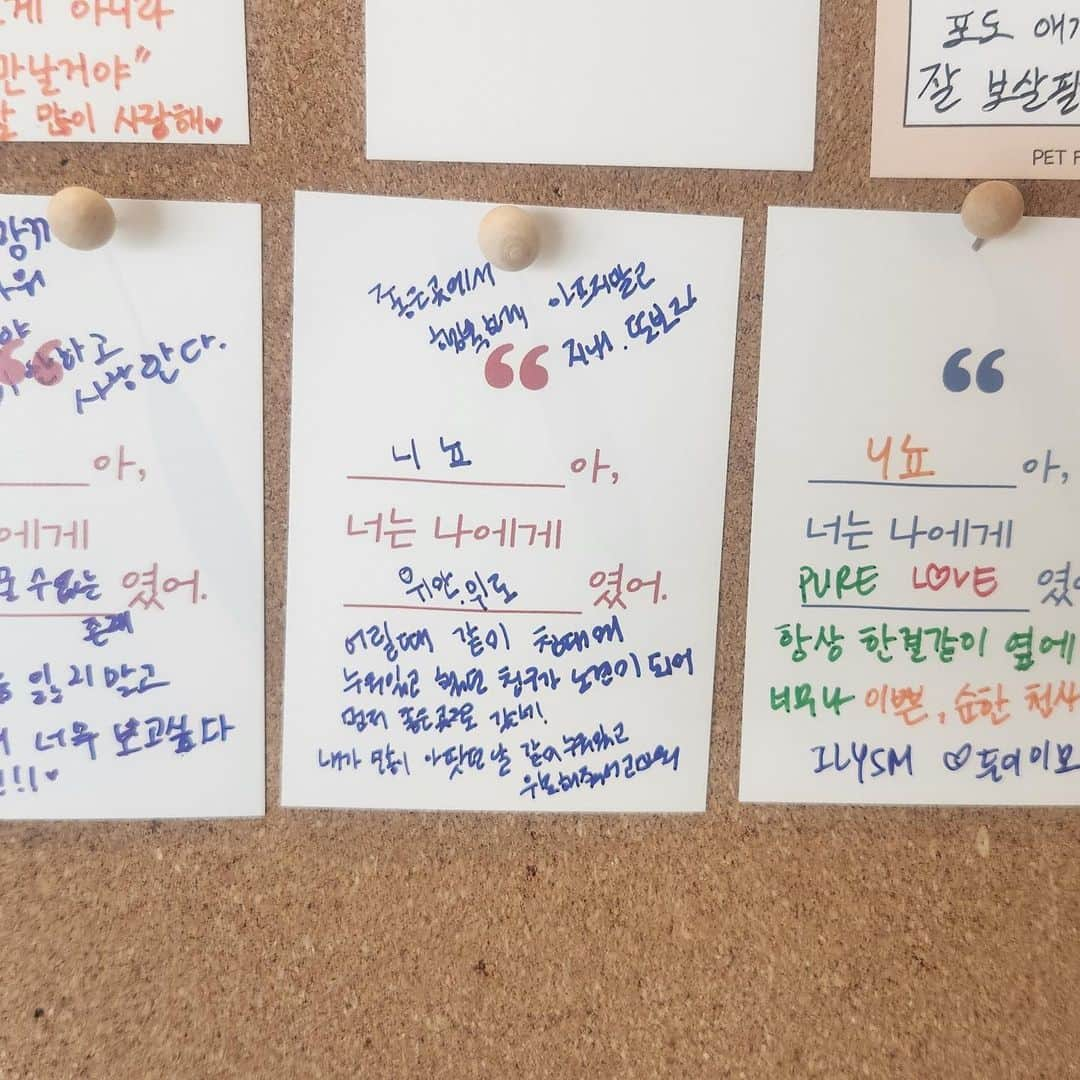 게 아니라
만날거야"
많이 사랑해♥
포도 애기
잘 보살필
PET F
망끼
하고
사랑한다.
아,
에게
수없는 였어.
존재
잊지말고
너무 보고싶다
!!♥
좋은곳에서
행복하게 아프지말고
지내. 또보자
“
니뇨 아,
너는 나에게
위안.위로 였어.
어릴때 같이 침대에
누워있고 했던 친구가 노견이 되어
먼저 좋은곳으로 갔네.
내가 많이 아팠던 날 같이누워있고
위로해줘서고마워
“
니뇨 아,
너는 나에게
PURE LOVE 였어
항상 한결같이 옆에
너무나 이쁜, 순한 천사
ILYSM ♡ 이모